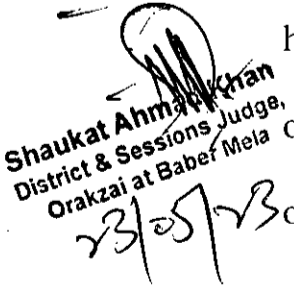 h
Shaukat Ahmad Khan
District & Sessions Judge,
Orakzai at Baber Mela
23/05/23